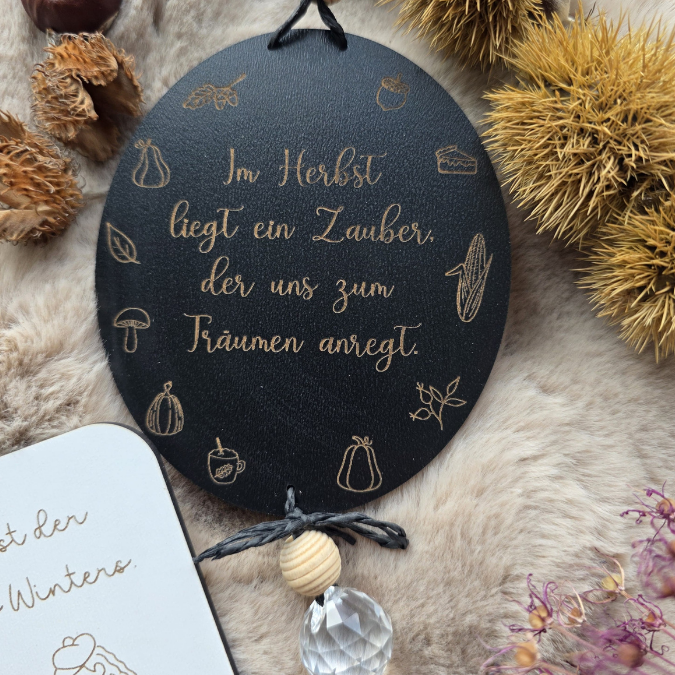 Im Herbst
liegt ein Zauber,
der uns zum
Träumen anregt.
der
Winters.